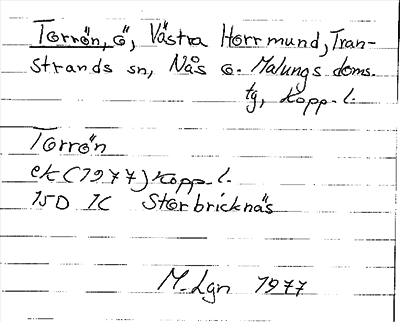 Torrön, ö, Västra Horrmund, Tran-
strands sn, Nås o. Malungs doms.
tg, Kopp. l.
Torrön
ek (1977) Kopp. l.
15D 1C Storbricknäs
M. Lgn 1977